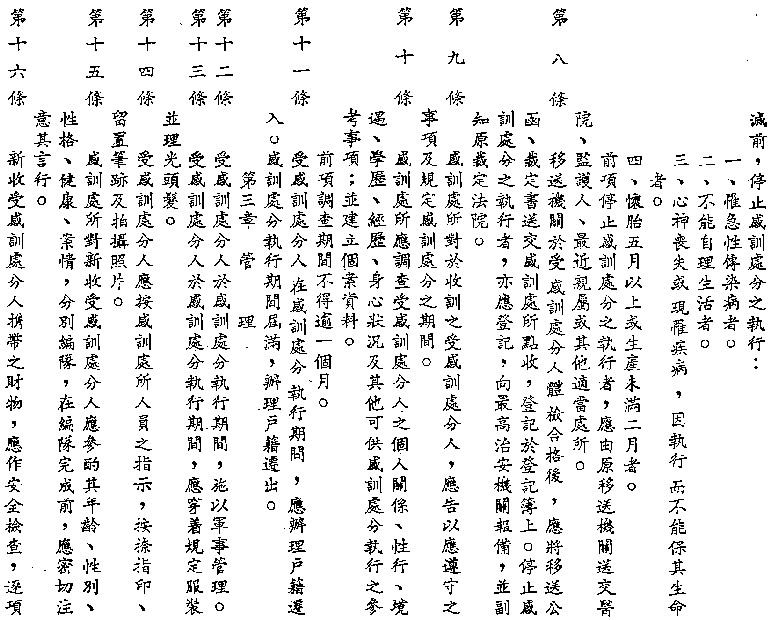 滅前，停止感訓處分之執行：
一、惟急性傳染病者。
二、不能自理生活者。
三、心神喪失或現罹疾病，因執行而不能保其生命
者。
四、懷胎五月以上或生產未滿二月者。
前項停止感訓處分之執行者，應由原移送機關送交醫
院、監護人、最近親屬或其他適當處所。
第八條　移送機關於受感訓處分人體檢合格後，應將移送公
函、裁定書送交感訓處所點收，登記於登記簿上。停止感
訓處分之執行者，亦應登記，向最高治安機關報備，並副
知原裁定法院。
第九條　感訓處所對於收訓之受感訓處分人，應告以應遵守之
事項及規定感訓處分之期間。
第十條　感訓處所應調查受感訓處分人之個人關係、性行、境
遇、學歷、經歷、身心狀況及其他可供感訓處分執行之參
考事項；並建立個案資料。
前項調查期間不得逾一個月。
第十一條　受感訓處分人在感訓處分執行期間，應辦理戶籍遷
入。感訓處分執行期間屆滿，辦理戶籍遷出。
第三章　管　理
第十二條　受感訓處分人於感訓處分執行期間，施以軍事管理。
第十三條　受感訓處分人於感訓處分執行期間，應穿着規定服裝
並理光頭髮。
第十四條　受感訓處分人應按感訓處所人員之指示，按捺指印、
留置筆跡及拍攝照片。
第十五條　感訓處所對新收受感訓處分人應參酌其年齡、性別、
性格、健康、案情，分別編隊，在編隊完成前，應密切注
意其言行。
第十六條　新收受感訓處分人携帶之財物，應作安全檢查，逐項